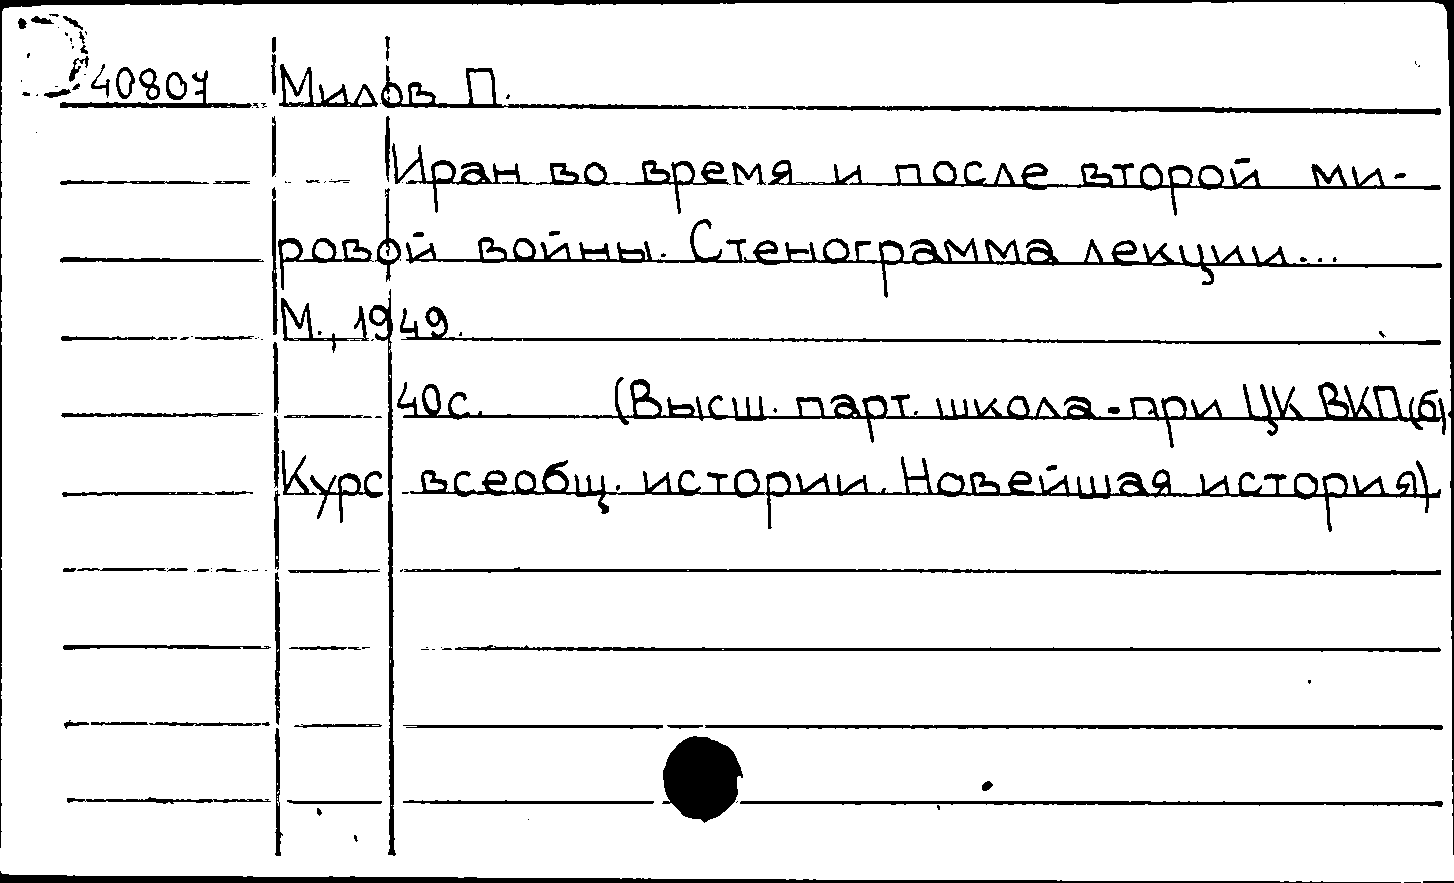 40807 Милов П.
Иран во время и после второй ми-
ровой войны. Стенограмма лекции...
М., 1949.
40с. (Высш. парт. школа при ЦК ВКП(б).
Курс всеобщ. истории. Новейшая история)